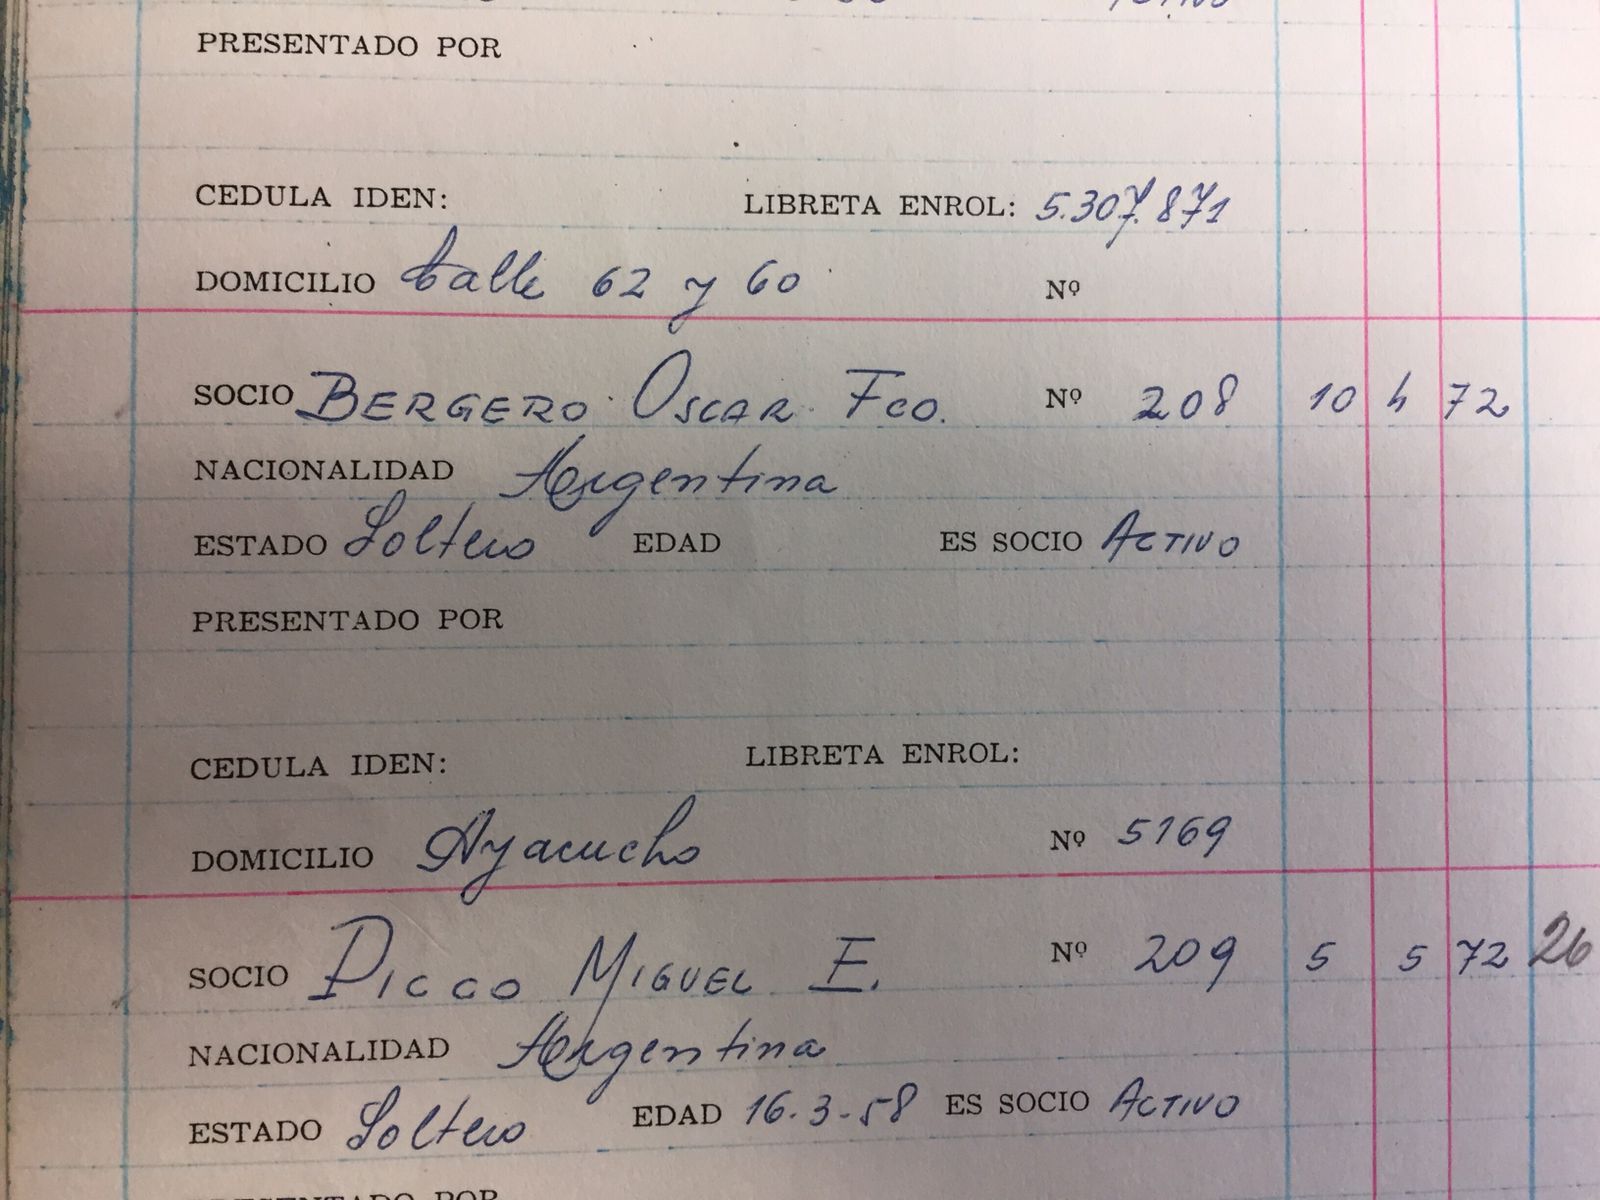 PRESENTADO POR
CEDULA IDEN: LIBRETA ENROL: 5.307.871
DOMICILIO Calle 62 y 60 Nº
SOCIO BERGERO OSCAR Fco. Nº 208 10 4 72
NACIONALIDAD Argentina
ESTADO Soltero EDAD ES SOCIO ACTIVO
PRESENTADO POR
CEDULA IDEN: LIBRETA ENROL:
DOMICILIO Ayacucho Nº 5169
SOCIO PICCO MIGUEL E. Nº 209 5 5 72 26
NACIONALIDAD Argentina
ESTADO Soltero EDAD 16-3-58 ES SOCIO ACTIVO
PRESENTADO POR